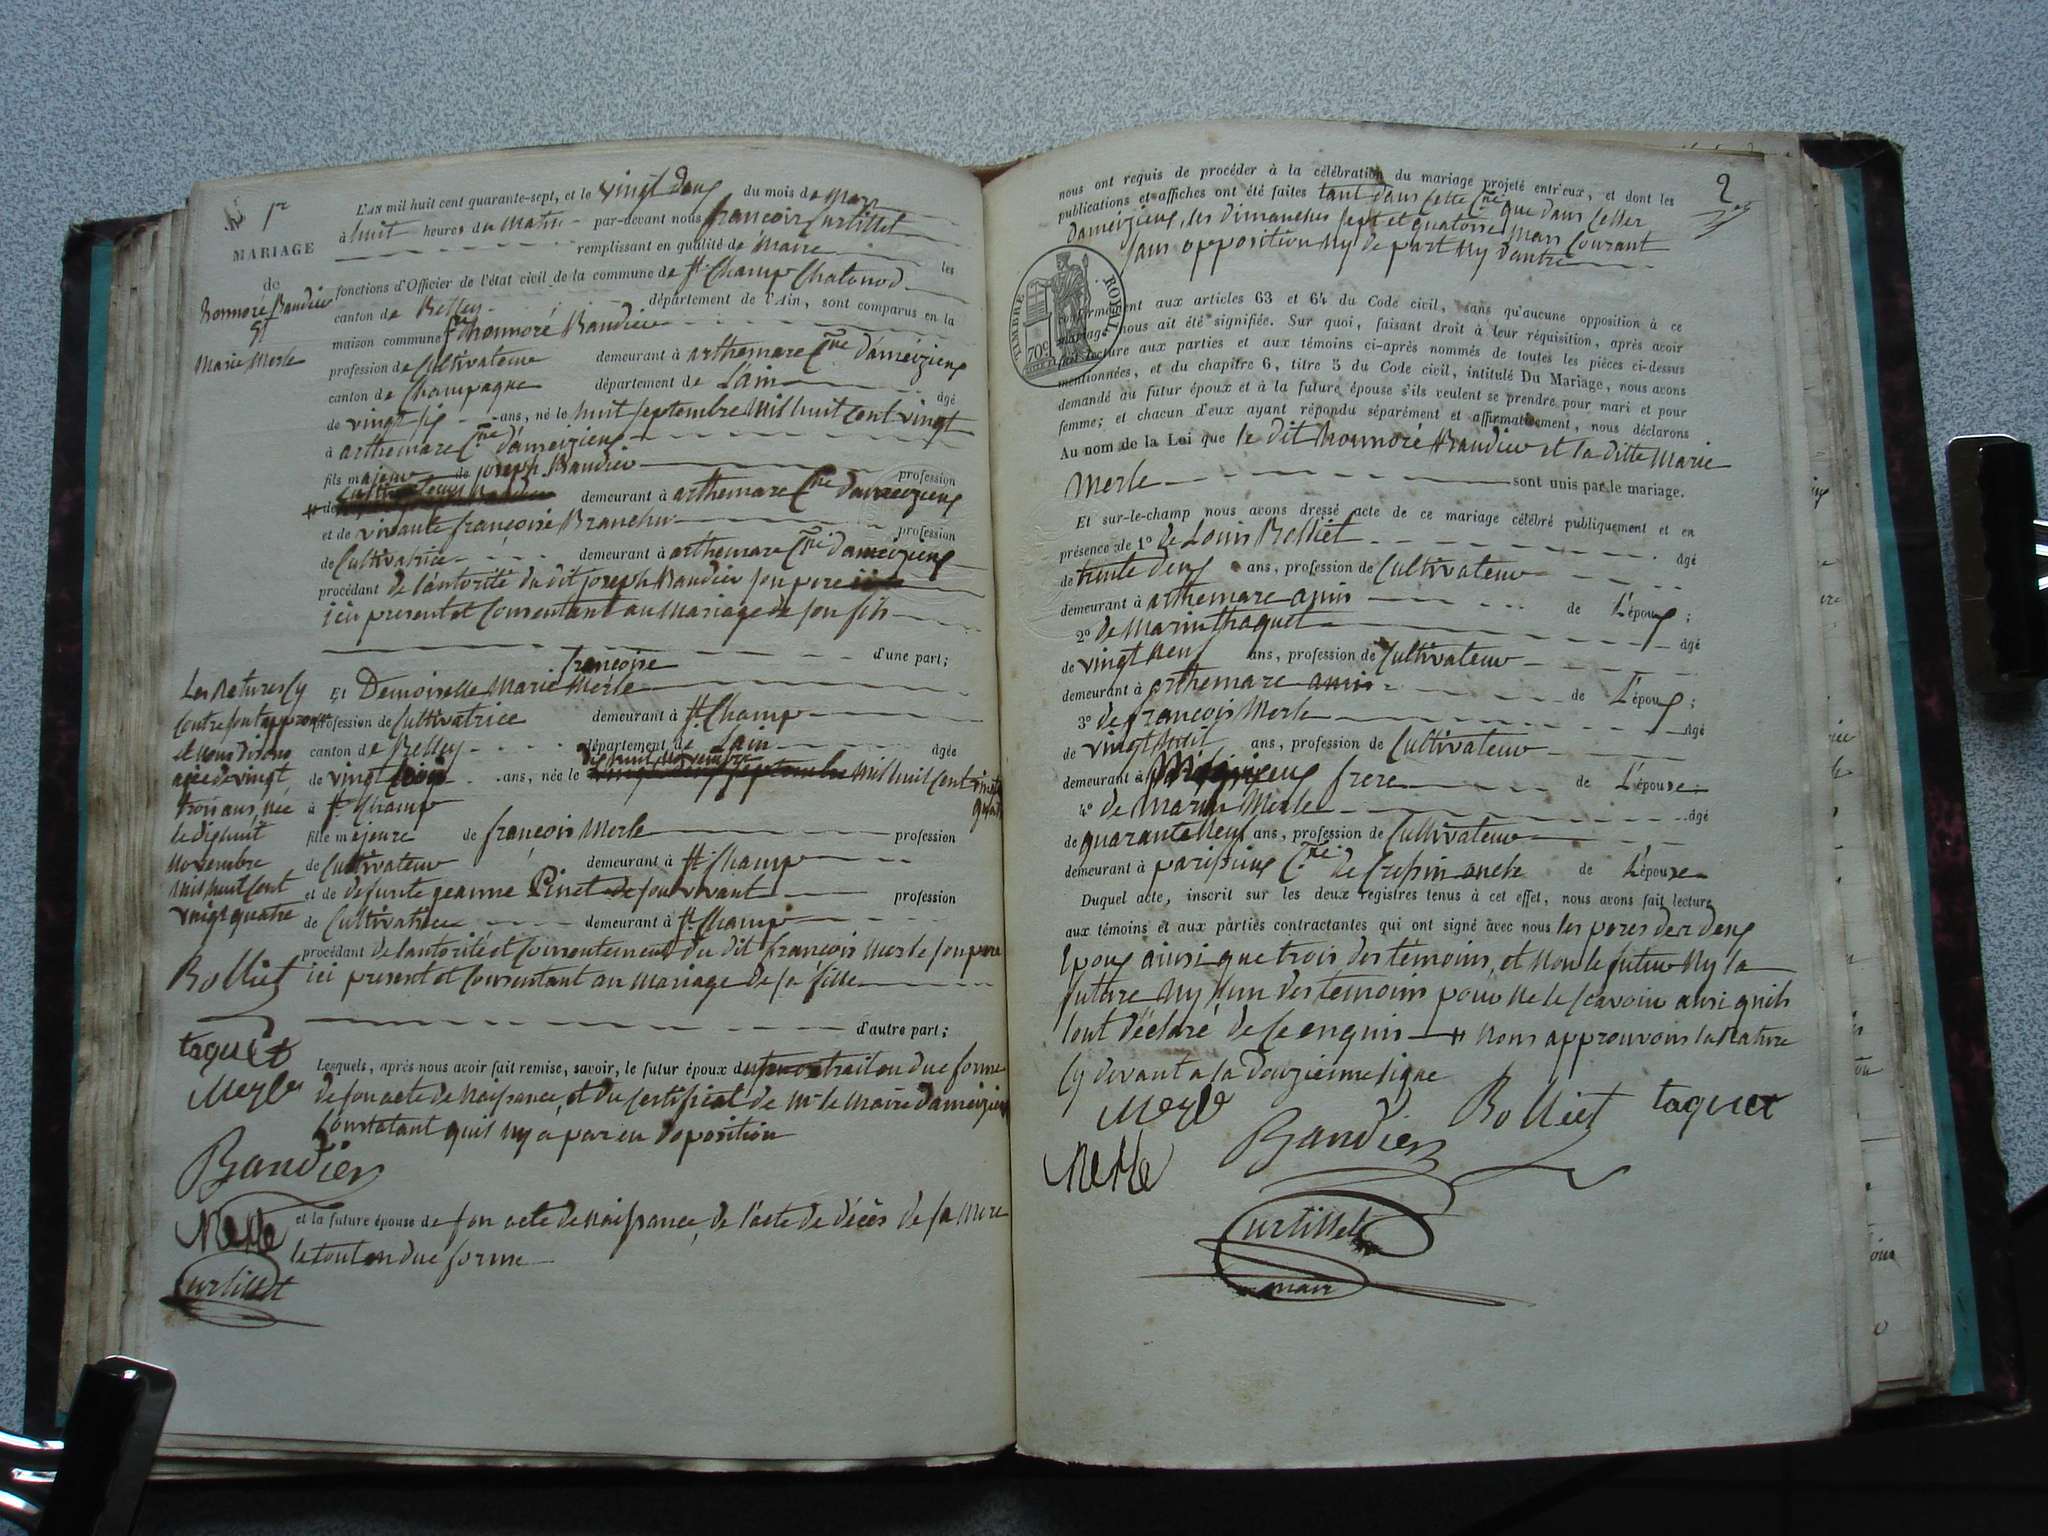 1er
MARIAGE
de
honnoré Baudier
Et
Marie Merle
L'AN mil huit cent quarante-sept, et le vingt deux du mois de mars
à huit heures du matin par-devant nous françois Curtillet
remplissant en qualité de maire les
fonctions d'Officier de l'état civil de la commune de St Champ Chatonod
canton de Belley département de l'Ain, sont comparus en la
maison commune honnoré Baudier
profession de Cultivateur demeurant à arthemare Cne d'améizieux
canton de Champagne département de L'ain âgé
de vingt six ans, né le huit septembre mil huit cent vingt
à arthemare Cne d'améizieux
fils majeur de joseph Baudier profession
de demeurant à arthemare Cne d'améizieux
et de vivante françoise Branchu profession
de Cultivatrice demeurant à arthemare Cne d'améizieux
procédant de l'autorité du dit joseph Baudier son pere
ici present et Consentant au Mariage de son fils
d'une part;
françoise
Et Demoiselle Marie Merle
profession de Cultivatrice demeurant à St Champ
canton de Belley département de Lain âgée
dix huit Novembre
de vingt trois ans, née le septembre mil huit Cent vingt
quatre
à St Champ
fille majeure de françois Merle profession
de Cultivateur demeurant à St Champ
et de defunte jeanne Pinet de son vivant profession
de Cultivatrice demeurant à St Champ
procédant de l'autorité et Consentement du dit françois Merle son pere
ici present et Consentant au mariage de sa fille
d'autre part;
Les Ratures Cy
Contre sont approuvé
et nous disons
agée de vingt
trois ans, née
le dix huit
Novembre
mil huit Cent
vingt quatre
Bolliet
taquet
Merle
Baudier
Merle
Curtillet
Lesquels, après nous avoir fait remise, savoir, le futur époux d'un extrait en due forme
de son acte de Naissance, et du Certificat de Mr le Maire d'améizieu
Constatant qu'il ny a pas eu doposition
et la future épouse de son acte de Naissance, de l'acte de décès de sa mere
le tout en due forme
2
nous ont requis de procéder à la célébration du mariage projeté entr'eux, et dont les
publications et affiches ont été faites tant dans cette Cne que dans Celler
dameizieux, les dimanches sept et quatorze Mars Courant
sans opposition ny de part ny d'autre
TIMBRE ROYAL
70c
conformément aux articles 63 et 64 du Code civil, sans qu'aucune opposition à ce
mariage nous ait été signifiée. Sur quoi, faisant droit à leur réquisition, après avoir
fait lecture aux parties et aux témoins ci-après nommés de toutes les pièces ci-dessus
mentionnées, et du chapitre 6, titre 5 du Code civil, intitulé Du Mariage, nous avons
demandé au futur époux et à la future épouse s'ils veulent se prendre pour mari et pour
femme; et chacun d'eux ayant répondu séparément et affirmativement, nous déclarons
Au nom de la Loi que le dit honnoré Baudier et la ditte Marie
Merle sont unis par le mariage.
Et sur-le-champ nous avons dressé acte de ce mariage célébré publiquement et en
présence de 1º de Louis Bolliet âgé
de trente deux ans, profession de Cultivateur
demeurant à arthemare amis de L'époux;
2º de Marin thaquet âgé
de vingt neuf ans, profession de Cultivateur
demeurant à arthemare amis de L'époux;
3º de françois Merle âgé
de vingt huit ans, profession de Cultivateur
demeurant à frere de L'épouse
4º de marin Merle âgé
de quarante neuf ans, profession de Cultivateur
demeurant à parissieux Cne de oncle de L'épouse
Duquel acte, inscrit sur les deux registres tenus à cet effet, nous avons fait lecture
aux témoins et aux parties contractantes qui ont signé avec nous les peres des deux
Epoux ainsi que trois des témoins, et non le futur Ny la
future Ny l'un des temoins pour ne le scavoir ainsi qu'ils
lont Déclaré de ce enquis nous approuvons la Rature
Cy devant a la Douzieme ligne
Merle
Bolliet
taquet
Baudier
Merle
Curtillet
maire